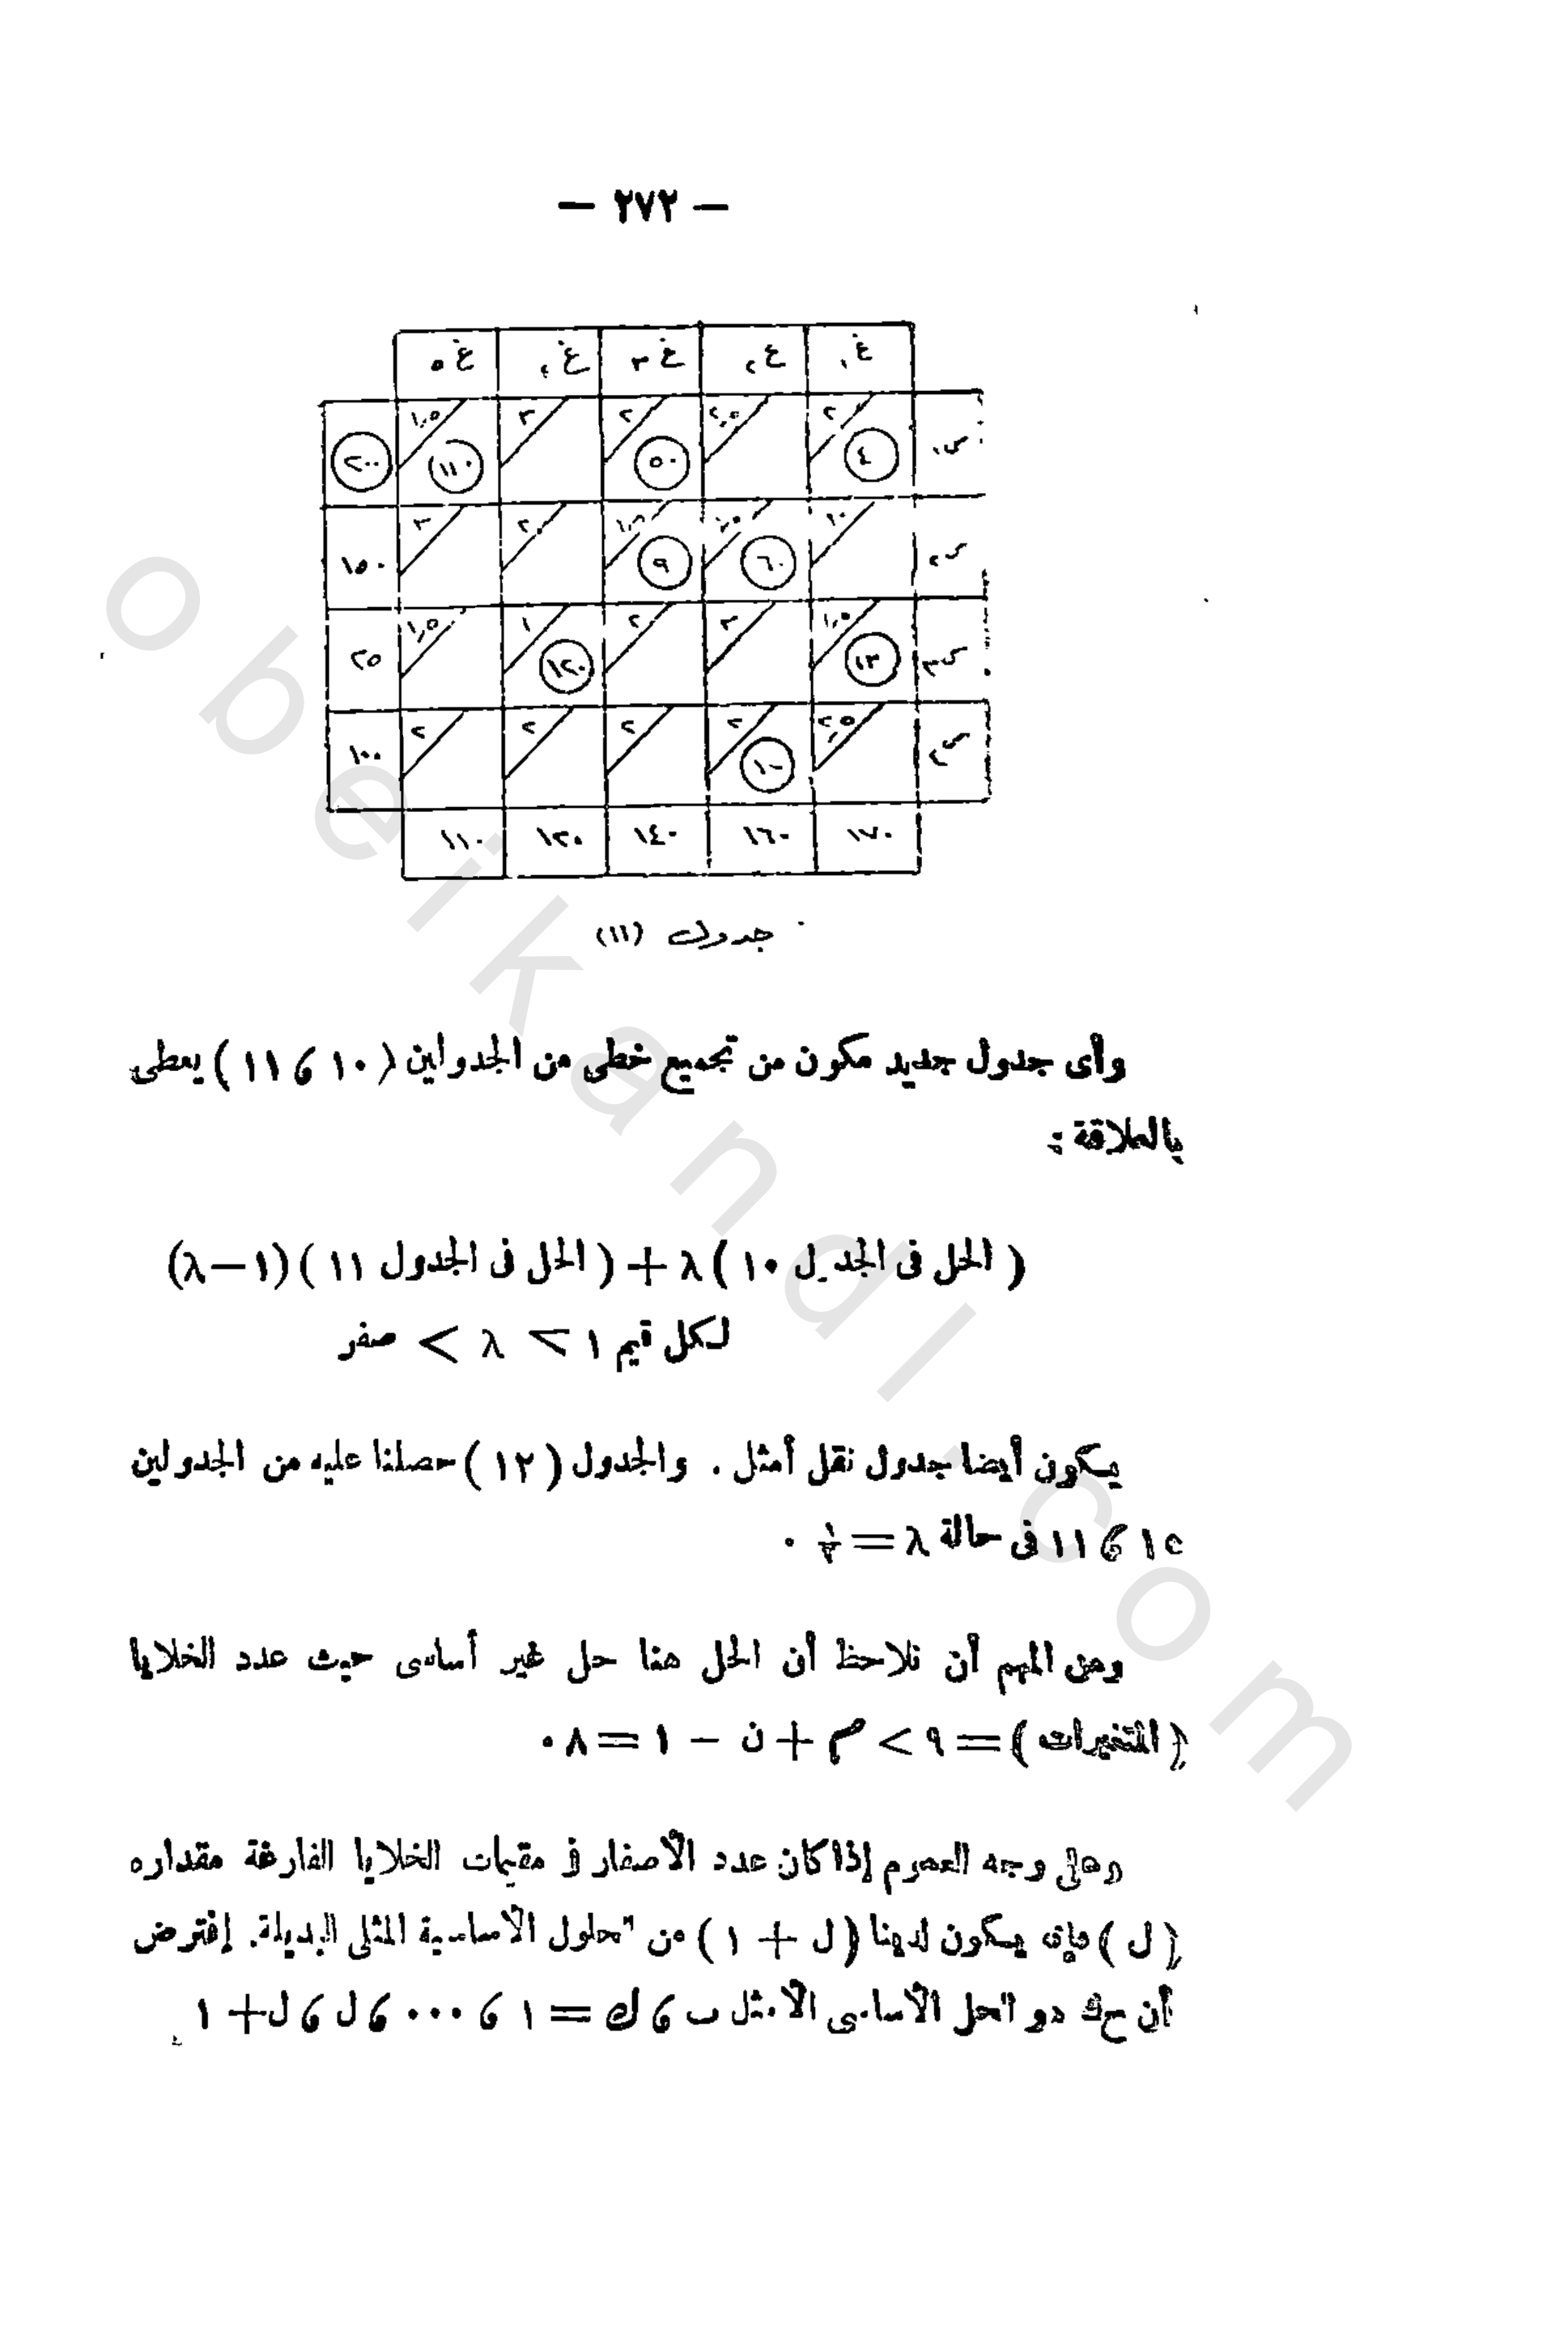 — ٢٧٢ —
غ١ غ٢ غ٣ غ٤ غ٥
س١ ٢ ٤٠ ٢,٥ ٢ ٥٠ ٣ ١,٥ ١١٠ ٢٠٠
س٢ ١,٥ ٦٠ ١,٥ ٩ ٢,٠ ٣ ١٥٠
س٣ ١,٥ ١٣ ٣ ٢ ١ ١٢٠ ١,٥ ٢٥
س٤ ٢,٥ ٢ ١٠٠ ٢ ٢ ٢ ١٠٠
١٧٠ ١٦٠ ١٤٠ ١٢٠ ١١٠
جدول (١١)
وأى جدول جديد مكون من تجميع خطى من الجدولين (١٠ ، ١١) يعطى
بالعلاقة :
(الحل فى الجدول ١٠) λ + (الحل فى الجدول ١١) (١ − λ)
لكل قيم ١ > λ > صفر
يكون أيضا جدول نقل أمثل . والجدول (١٢) حصلنا عليه من الجدولين
١٠ ، ١١ فى حالة λ = ½ .
ومن المهم أن نلاحظ أن الحل هنا حل غير أساسى حيث عدد الخلايا
(المتغيرات) = ٩ > م + ن − ١ = ٨ .
وعلى وجه العموم إذا كان عدد الأصفار فى مقيمات الخلايا الفارغة مقداره
(ل) فإنه يكون لدينا (ل + ١) من الحلول الأساسية المثلى البديلة. إفترض
أن حك هو الحل الأساسى الأمثل ب ، ك = ١ ، ... ، ل ، ل + ١
obeikandl.com